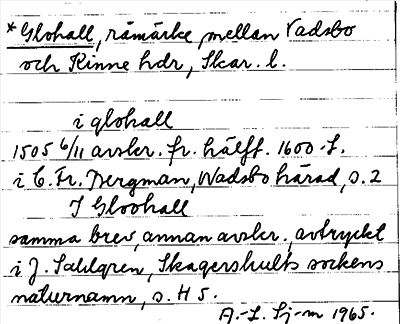 *Glohall, råmärke, mellan Vadsbo
och Kinne hdr, Skar. l.
i glohall
1505 6/11 avskr. fr. hälft. 1600-t.
i C. Fr. Bergman, Wadsbo härad, s. 2
I Gloohall
samma brev, annan avskr., avtryckt
i J. Sahlgren, Skagershults sockens
naturnamn, s. H 5.
A.-L. Sj-m 1965.